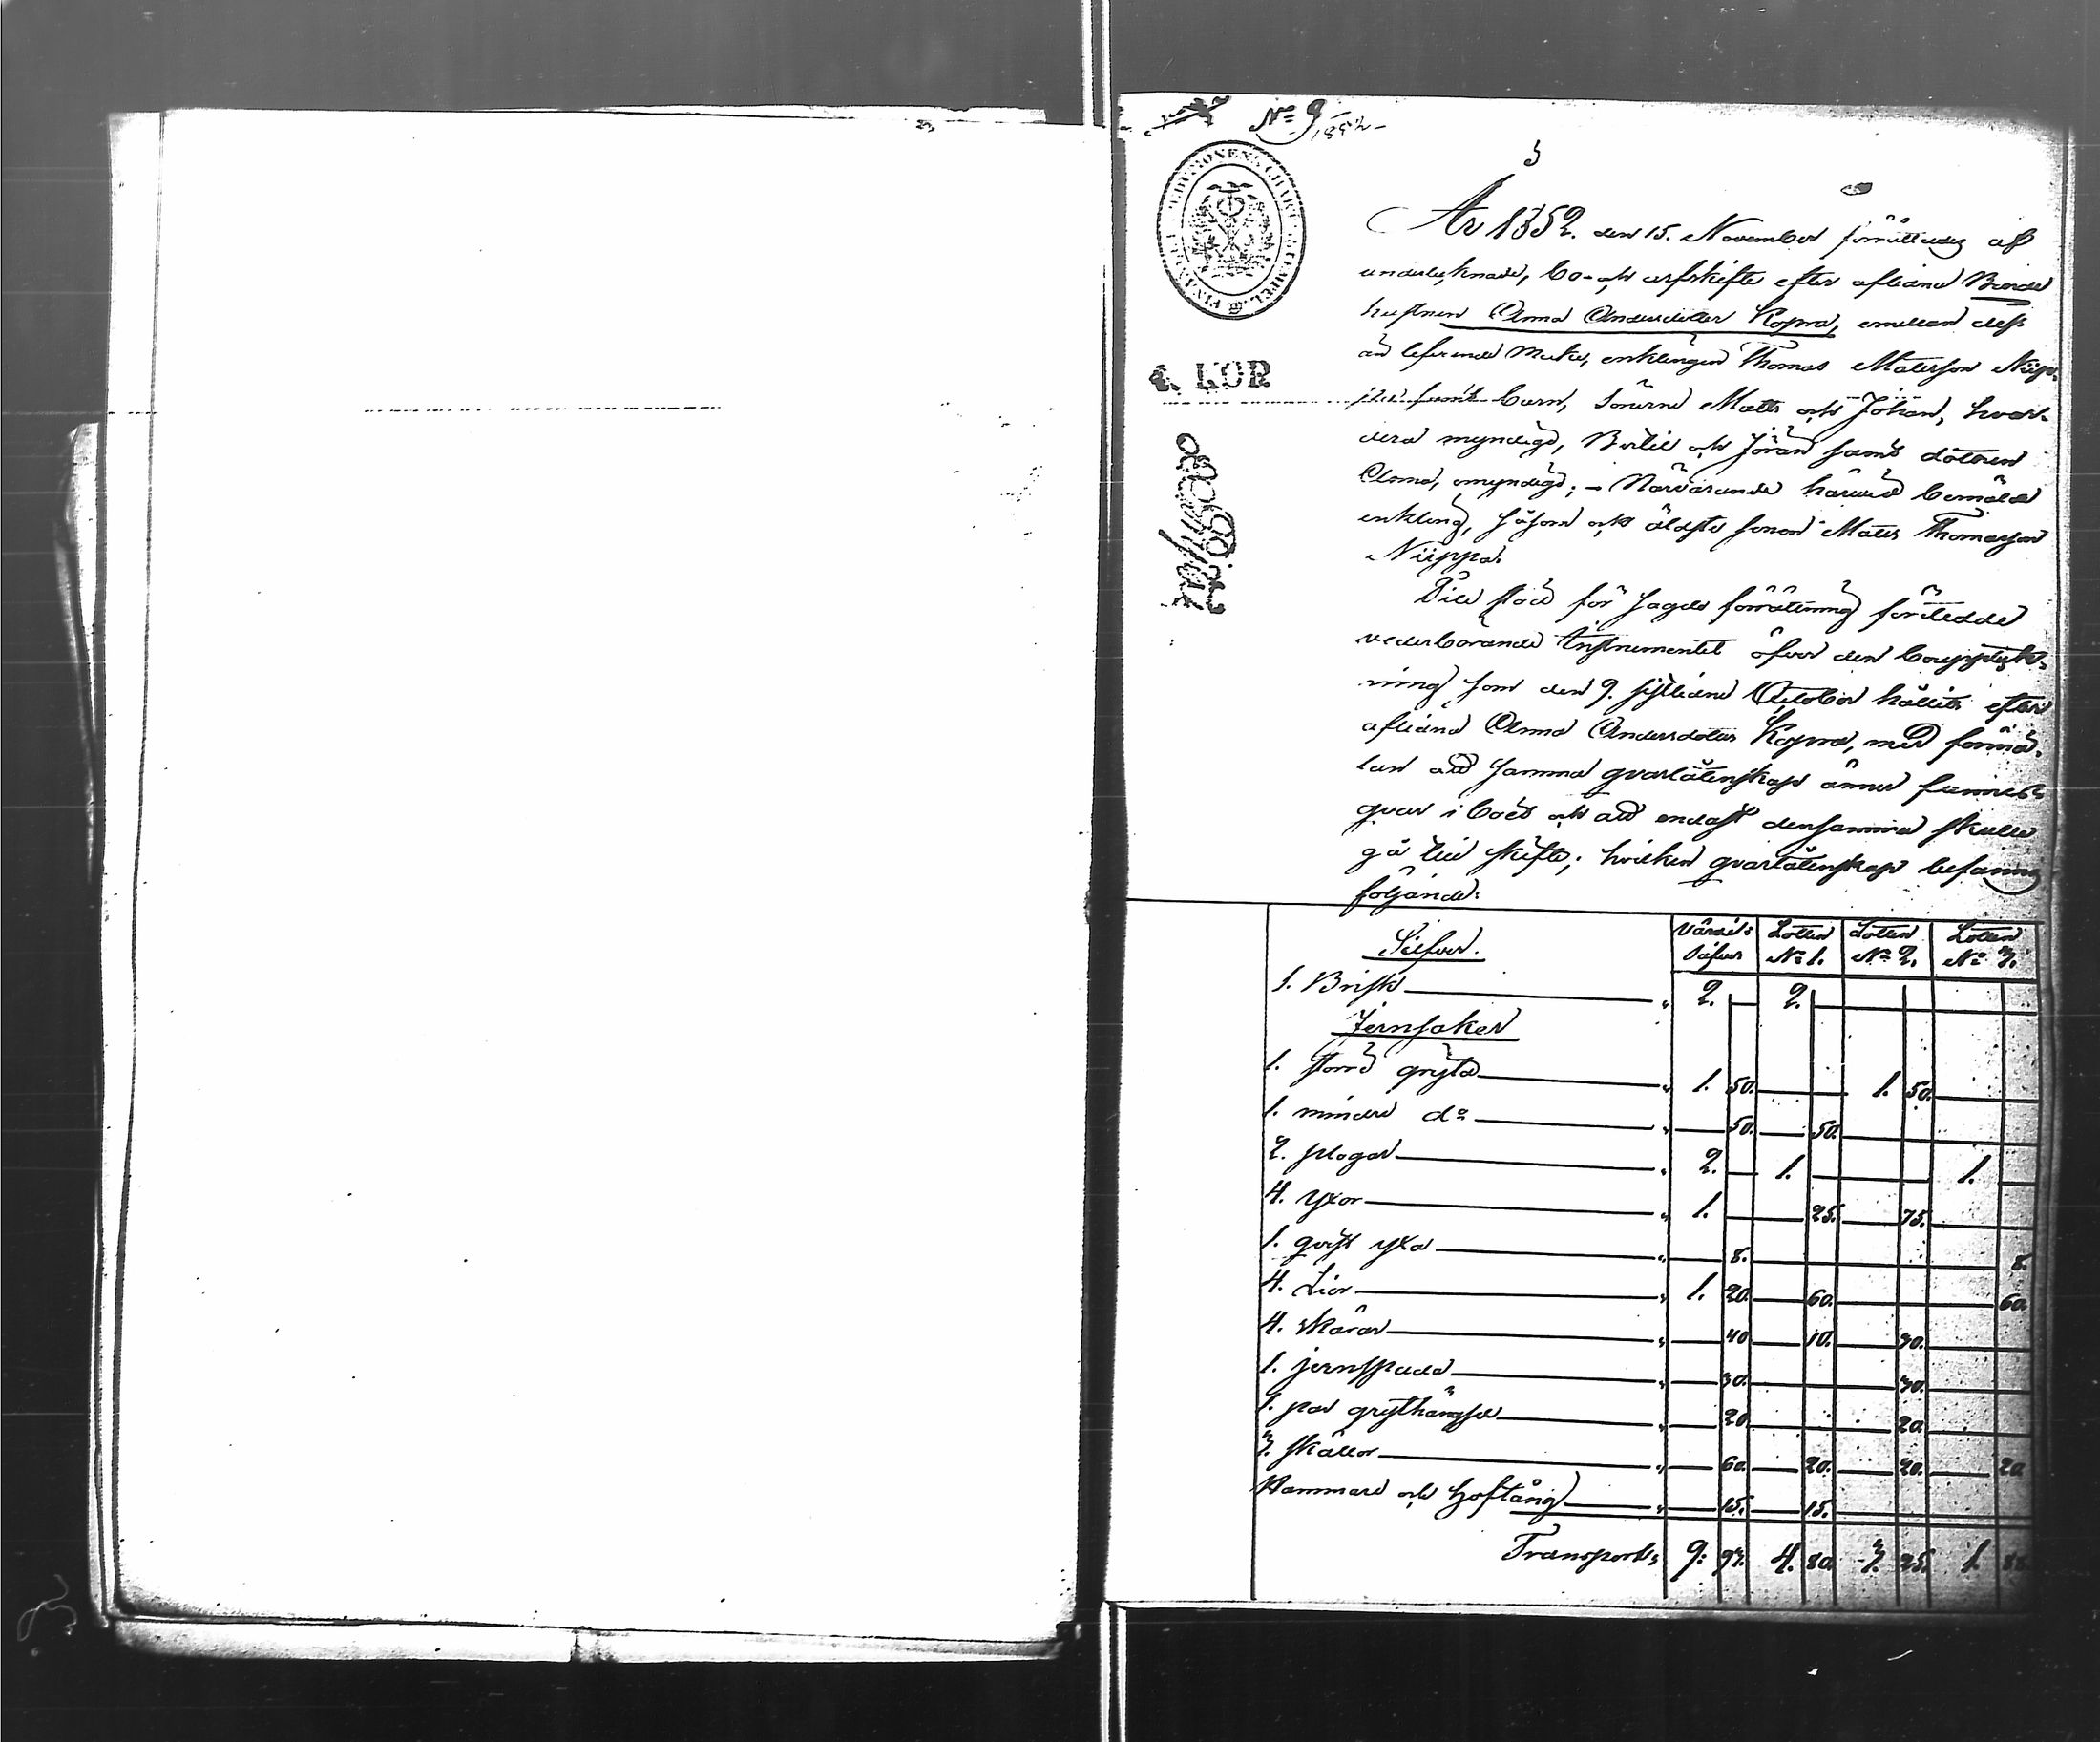 No 9
1852
3
4. KOR
År 1852. den 15. November förrättades af
undertecknade, bo- och arfskifte efter aflidna Bonde
hustrun Anna Andersdotter Kopra, emellan dess
än lefvande make, enklingen Thomas Matsson Niip-
barn, sönerne Matts och Johan, hvar-
dera myndige, Bertil och Jöran samt dottren
Anna, omyndige; – Närvarande härwid bemälde
enkling, såsom och äldste sonen Matts Thomasson
Niippa.
Till stöd för sagde förrättning företedde
vederbörande Instrumentet öfver den bouppteck-
ning som den 9. sistlidne October hållits efter
aflidna Anna Andersdotter Kopra, med förmä-
lan att samma qvarlåtenskap ännu funnits
qvar i boet och att endast densamma skulle
gå till skifte; hvilken qvarlåtenskap befanns
följande:
Silfver. Lotten No 1. Lotten No 2. Lotten No 3.
1. Brisk " 2. – 2. –
Jernsaker
1. större gryta " 1. 50. 1. 50.
1. mindre do " 50. 50.
2. plogar " 2. – 1. – 1. –
4. yxor " 1. – 25. 75.
1. qvist yxa " 8. 8.
4. Liar " 1. 20. 60. 60.
4. skäror " 40. 10. 30.
1. jernspada " 30. 30.
1. par grythängsel " 20. 20.
3. skällor " 60. 20. 20. 20
Hammare och hoftång " 15. 15.
Transport: 9: 93. 4. 80. 3. 25. 1. 88